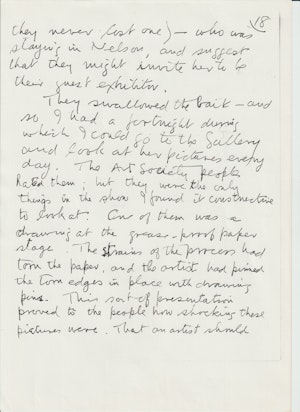 18
they never lost one) — who was
staying in Nelson, and suggest
that they might invite her to be
their guest exhibitor.
They swallowed the bait — and
so I had a fortnight during
which I could go to the Gallery
and look at her pictures every
day. The Art Society people
hated them; but they were the only
things in the show I found it constructive
to look at. One of them was a
drawing at the grease-proof paper
stage. The strains of the process had
torn the paper, and the artist had pinned
the torn edges in place with drawing
pins. This sort of presentation
proved to the people how shocking these
pictures were. That an artist should